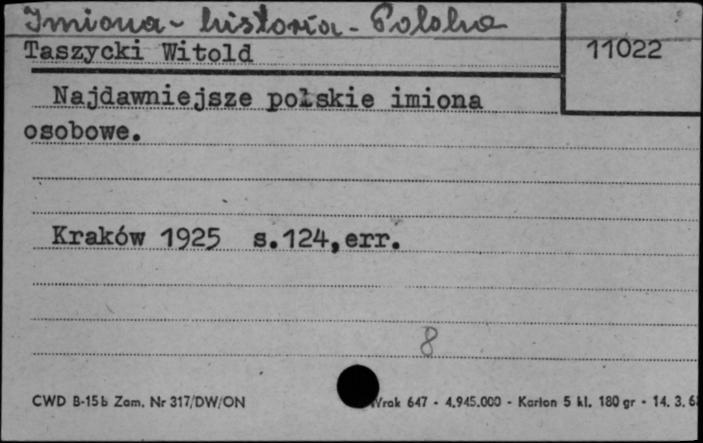 Imiona - historia - Polska
Taszycki Witold
11022
Najdawniejsze polskie imiona
osobowe.
Kraków 1925 s.124,err.
8
CWD B-15b Zam. Nr 317/DW/ON
647 - 4.945.000 - Karton 5 kl. 180 gr - 14. 3.